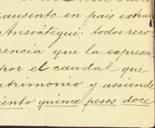 causento en pais extra
Ansoátegui: todos reco
rencia que la expresa
por el caudal que
atrimonio y asciende
iento quince pesos doce